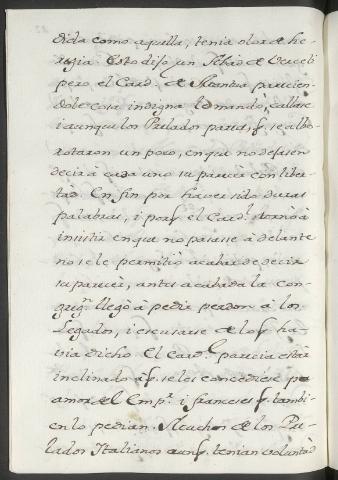 dida como aquella, tenia olor de he-
regia. Esto dijo un Obpo de Verceli
pero el Card. de Mantua parecien-
dole cosa indigna le mandò callase
i aunque los Prelados parece q. se albo-
rotaron un poco, en que no dejasen
decir à cada uno su parecer con liber-
tad. En fin por haver sido duras
palabras, i porq. el Card.l tornò à
insistir en que no pasase à delante
no se le permitiò acabar de decir
su parecer, antes acabada la con-
greg.n llegò à pedir perdon à los
Legados, i escusarse de lo q. ha-
via dicho. El Card.l parecia estàr
inclinado à q. se les concediese por
amor del Emp.r i franceses q. tambi-
en lo pedian. Muchos de los Pre-
lados Italianos aunq. tenian voluntad